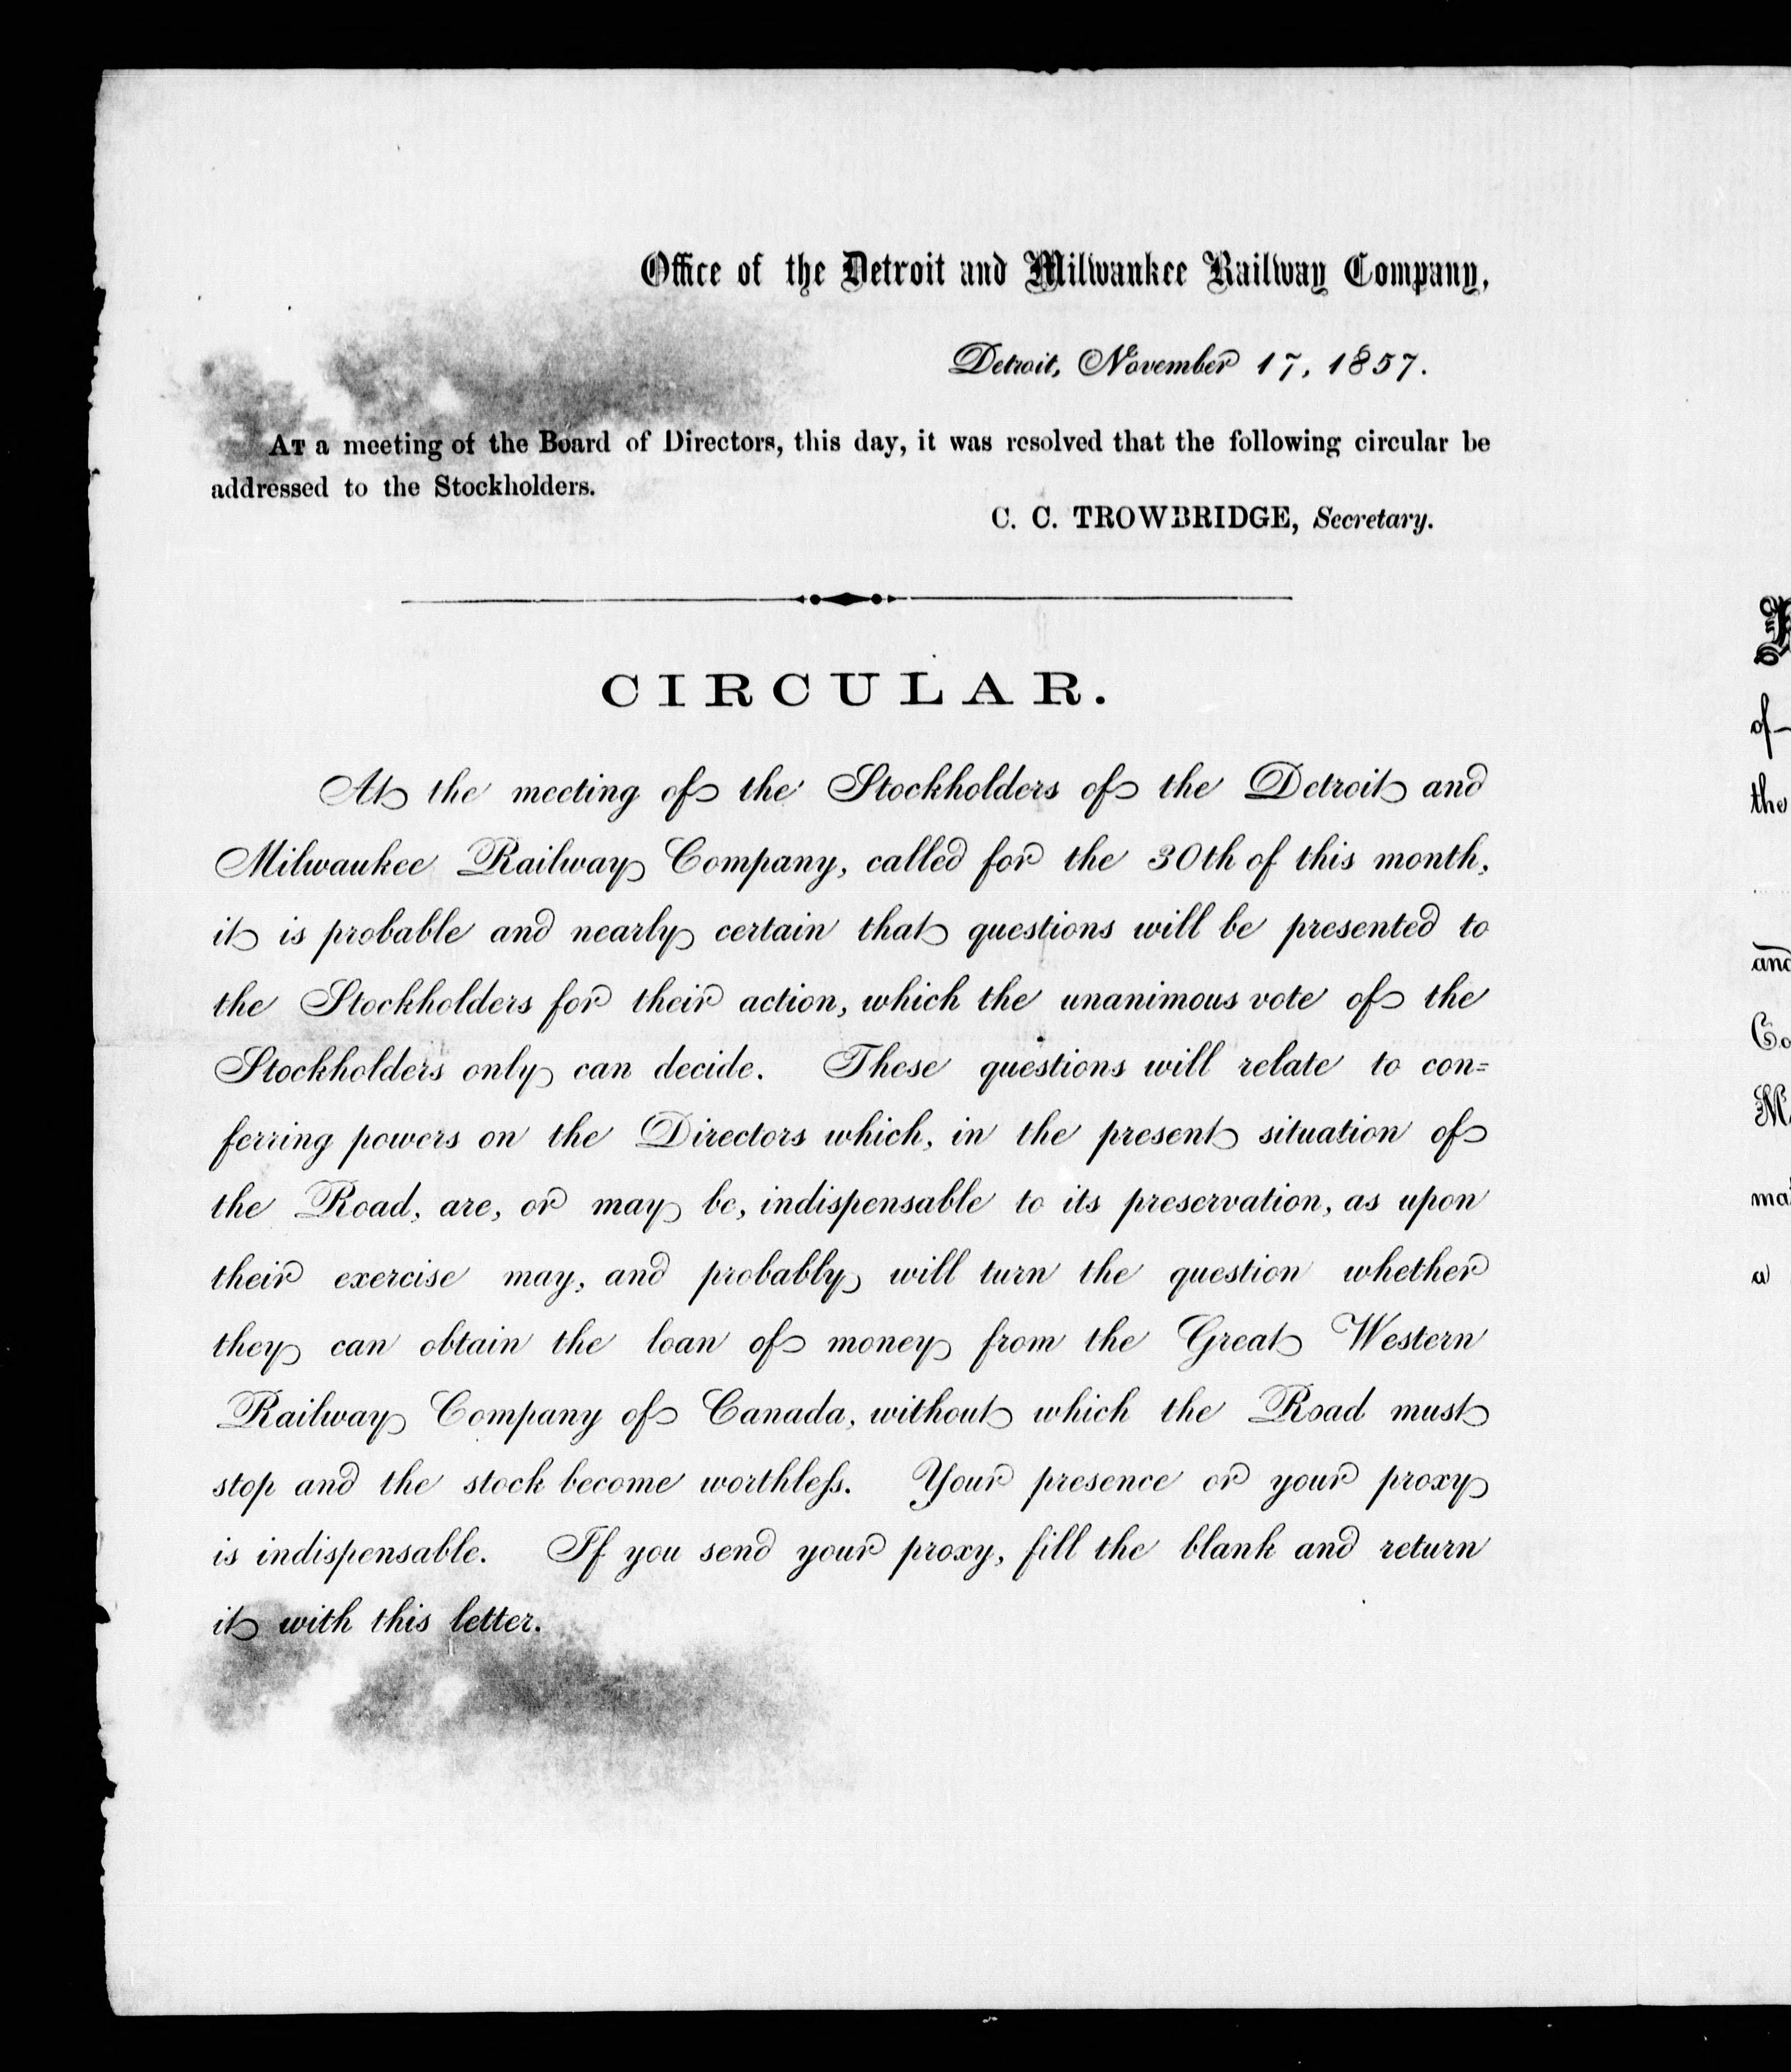 Office of the Detroit and Milwaukee Railway Company,
Detroit, November 17, 1857.
At a meeting of the Board of Directors, this day, it was resolved that the following circular be
addressed to the Stockholders.
C. C. TROWBRIDGE, Secretary.
CIRCULAR.
At the meeting of the Stockholders of the Detroit and
Milwaukee Railway Company, called for the 30th of this month,
it is probable and nearly certain that questions will be presented to
the Stockholders for their action, which the unanimous vote of the
Stockholders only can decide. These questions will relate to con=
ferring powers on the Directors which, in the present situation of
the Road, are, or may be, indispensable to its preservation, as upon
their exercise may, and probably will turn the question whether
they can obtain the loan of money from the Great Western
Railway Company of Canada, without which the Road must
stop and the stock become worthleſs. Your presence or your proxy
is indispensable. If you send your proxy, fill the blank and return
it with this letter.
of
the